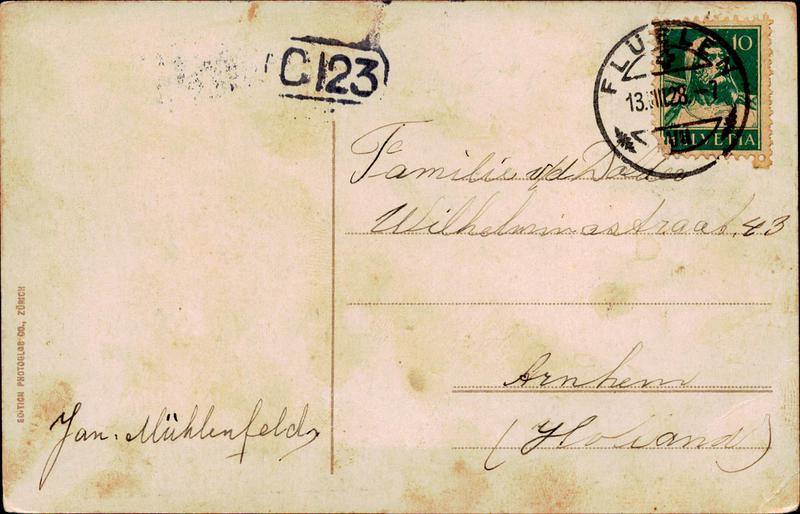 C 123
FLUELEN
13.VIII.28.
10
HELVETIA
Familie v/d
Wilhelminastraat. 43
Arnhem
(Holland)
Jan. Mühlenfeld
EDITION PHOTOGLOB CO., ZÜRICH